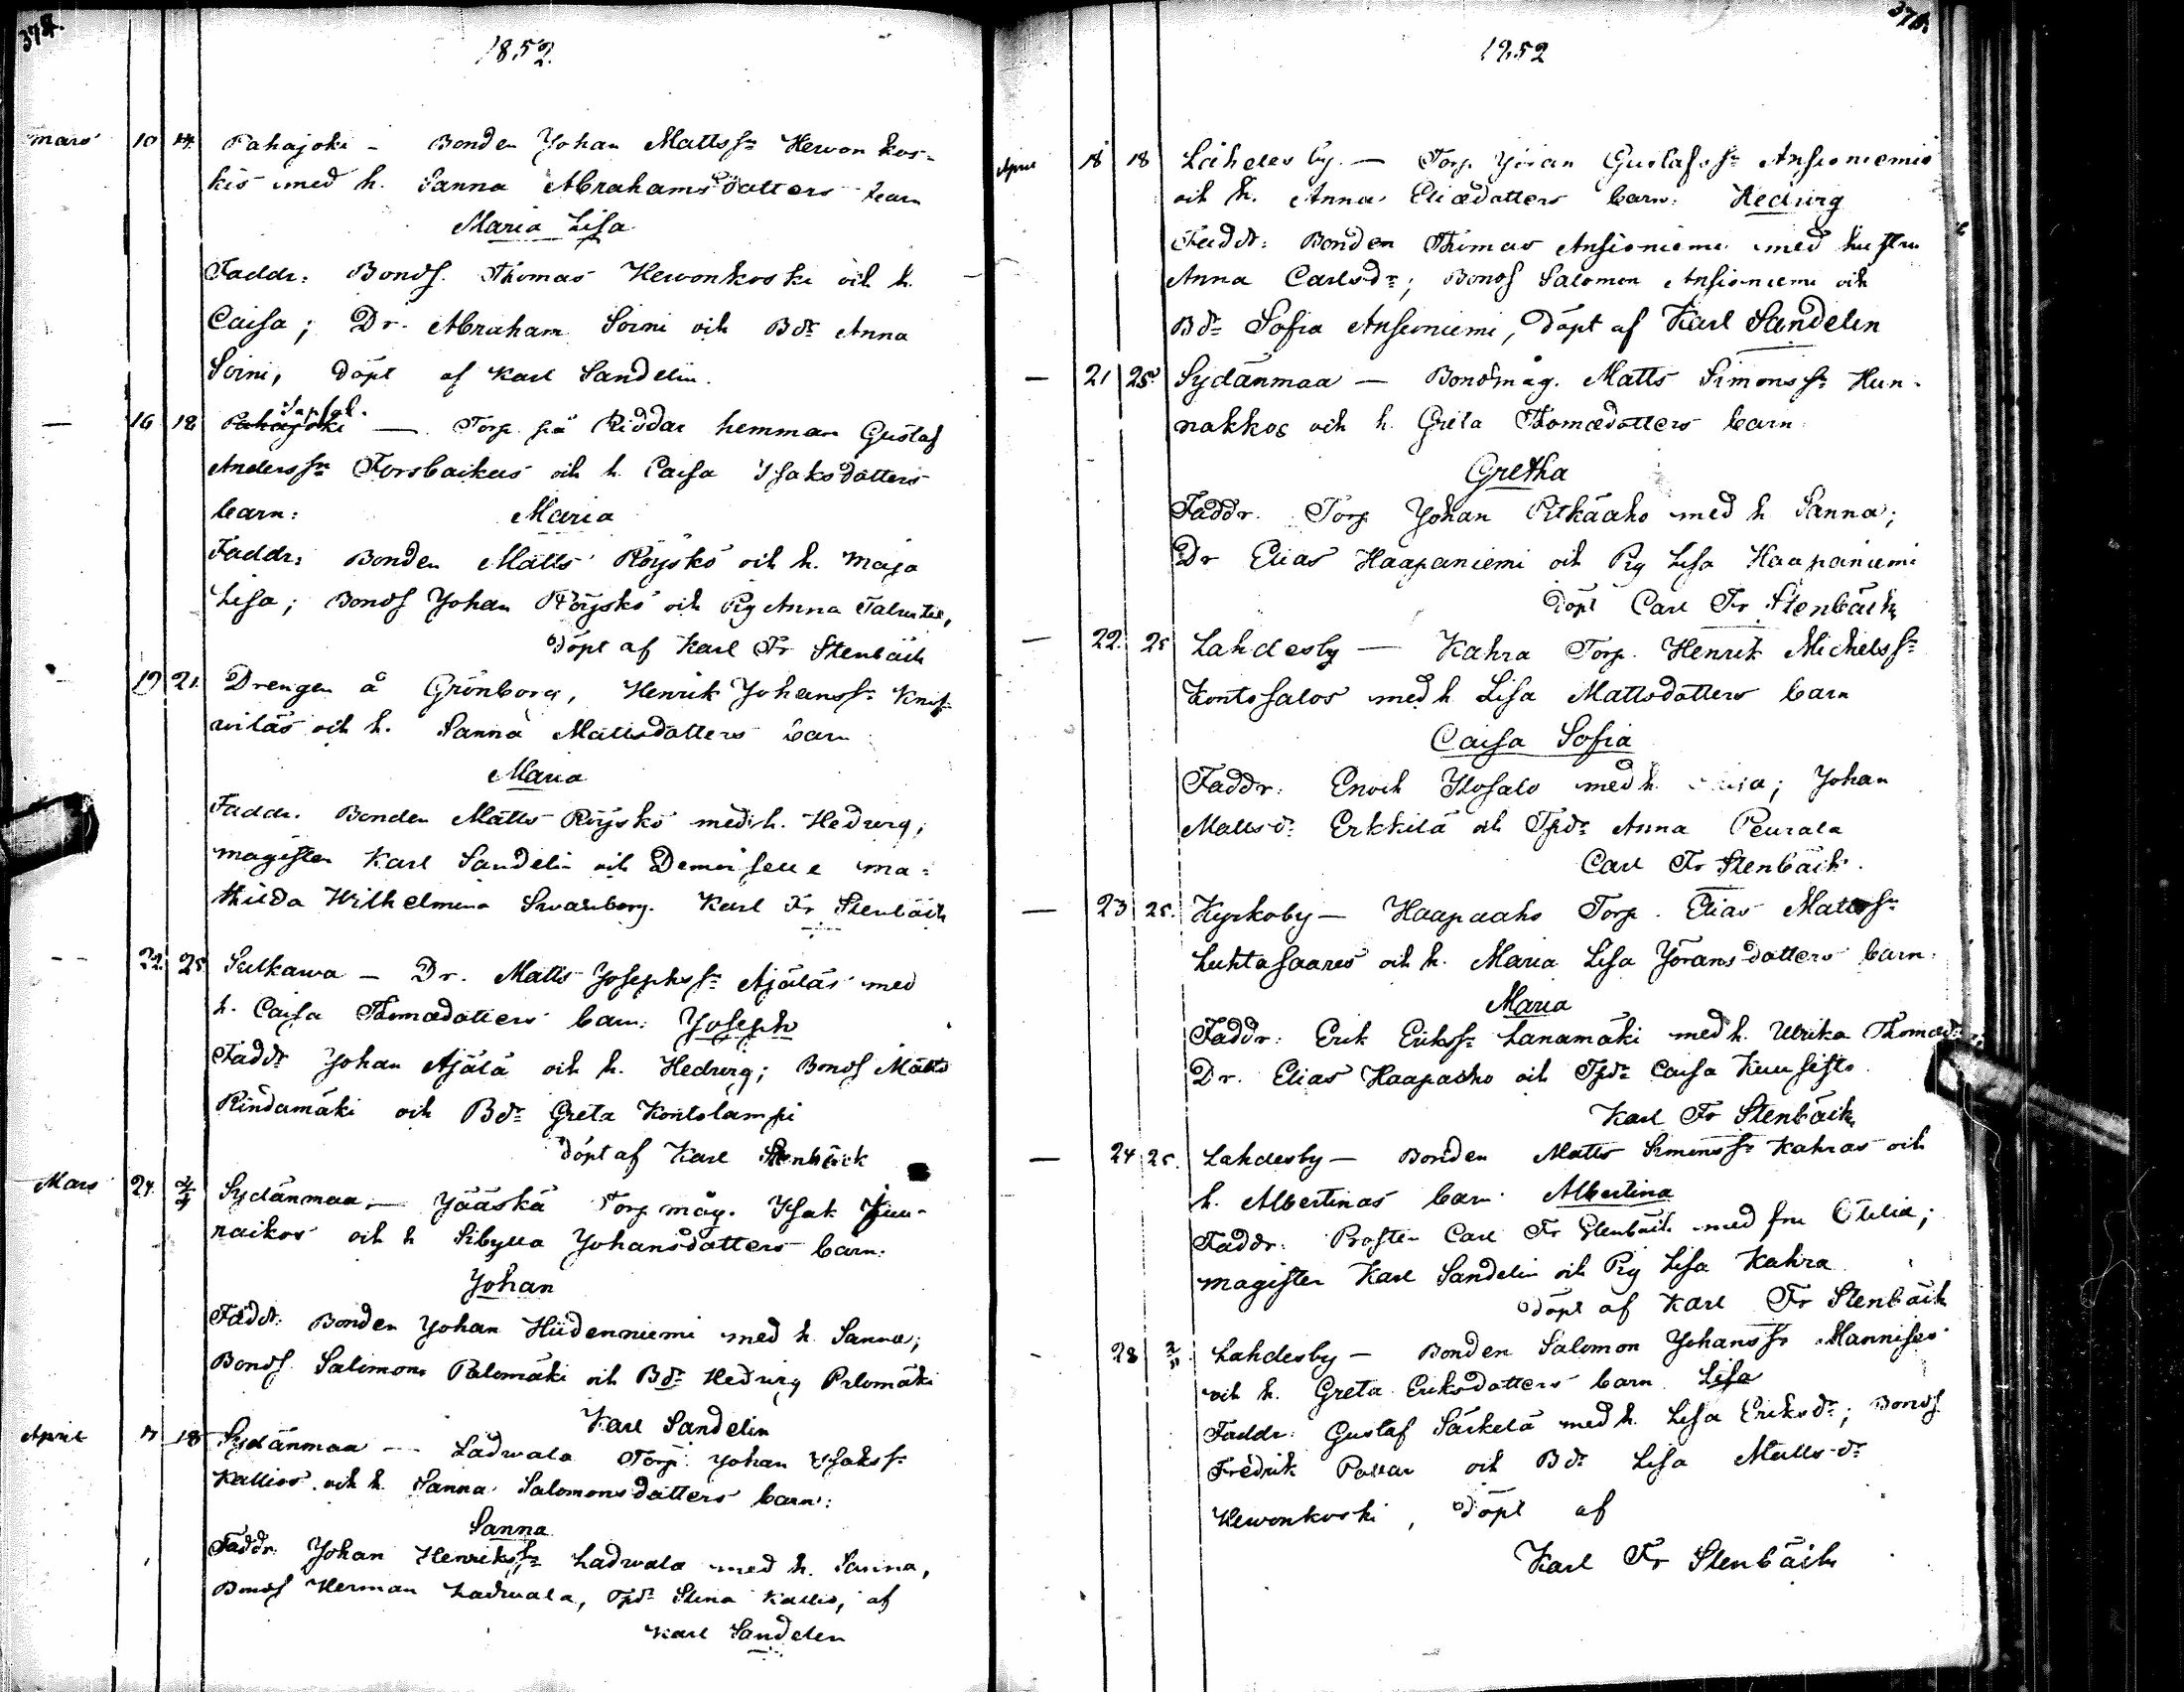 374.
1852.
mars 10 14 Pahajoki - Bonden Johan Mattss:n Hewonkos-
kis med h. Sanna Abrahamsdotters barn
Maria Lisa
Faddr: Bonds. Thomas Hewonkoski och h.
Caisa; Dr. Abraham Soini och Bdr Anna
Soini, döpt af Karl Sandelin.
— 16 18 Pahajoki — Torp. på Riddar hemman Gustaf
Anderss:n Forsbackas och h. Caisa Isaksdotters
barn: Maria
Faddr: Bonden Matts Röyskö och h. Maja
Lisa; Bonds Johan Röyskö och Pig Anna
döpt af Karl Fr Stenbäck
19 21. Drengen å Grönborg, Henrik Johanss:n
och h. Sanna Mattsdotters barn
Maria
Faddr. Bonden Matts Röyskö med h. Hedvig;
magister Karl Sandelin och Demoiselle Ma-
thilda Wilhelmina Svanberg. Karl Fr Stenbäck
-- 22. 25. Sulkawa — Dr. Matts Josephss:n Ajäläs med
h. Caisa Thomædotters barn: Joseph
Faddr Johan Ajälä och h. Hedvig; Bonds Matts
Rindamäki och Bdr Greta Kontolampi
döpt af Karl Stenbäck
Mars 24. 4/4 Sydänmaa — Jääskä Torp måg. Isak
och h Sibylla Johansdotters barn:
Johan
Faddr. Bonden Johan Hiidenniemi med h. Sanna;
Bonds. Salomon Palomäki och Bdr Hedvig Palomäki
Karl Sandelin
April 17 18 Sydänmaa — Ladwala Torp. Johan Isakss:n
Kallios och h. Sanna Salomonsdotters barn:
Sanna
Faddr. Johan Henrikss:n Ladwala med h. Sanna,
Bonds Herman Ladwala, Tpdr Stina Kallio, af
Karl Sandelin
375.
1852
April 18 18 Lahdes by. — Torp Jöran Gustafss:n Ansioniemis
och h. Anna Eliædotters barn: Hedvig
Faddr: Bonden Thomas Ansioniemi med hustru
Anna Carlsdr; Bonds Salomon Ansioniemi och
Bdr Sofia Ansioniemi, döpt af Karl Sandelin
— 21 25. Sydänmaa — Bondmåg. Matts Simonss:n Hun-
nakkos och h. Greta Thomædotters barn
Gretha
Faddr. Torp Johan Pitkäaho med h Sanna;
Dr Elias Haapaniemi och Pig Lisa Haapaniemi
döpt Carl Fr Stenbäck
— 22. 25 Lahdesby — Kahra Torp. Henrik Michelss:n
Kontosalos med h Lisa Mattsdotters barn
Caisa Sofia
Faddr: Enoch Ilosalo med h. Johan
Mattsd: Erkkilä och Tpdr Anna Peurala
Carl Fr Stenbäck.
— 23 25. Kyrkoby — Haapaaho Torp. Elias Mattss:n
Luhtasaares och h. Maria Lisa Jöransdotters barn:
Maria
Faddr: Erik Erikss:n Lanamäki med h. Ulrika Thomædr
Dr. Elias Haapaaho och Tpdr Caisa Kuusisto.
Karl Fr Stenbäck
— 24 25. Lahdesby — Bonden Matts Simonss:n Kahras och
h. Albertinas barn. Albertina
Faddr: Prosten Carl Fr Stenbäck med fru Otilia;
magister Karl Sandelin och Pig Lisa Kahra
döpt af Karl Fr Stenbäck
- 28 2/5. Lahdesby — Bonden Salomon Johanss:n Mannises
och h. Greta Eriksdotters barn Lisa
Faddr: Gustaf Särkelä med h. Lisa Eriksdr; Bonds
Fredrik och Bdr Lisa Mattsdr
Hewonkoski, döpt af
Karl Fr Stenbäck